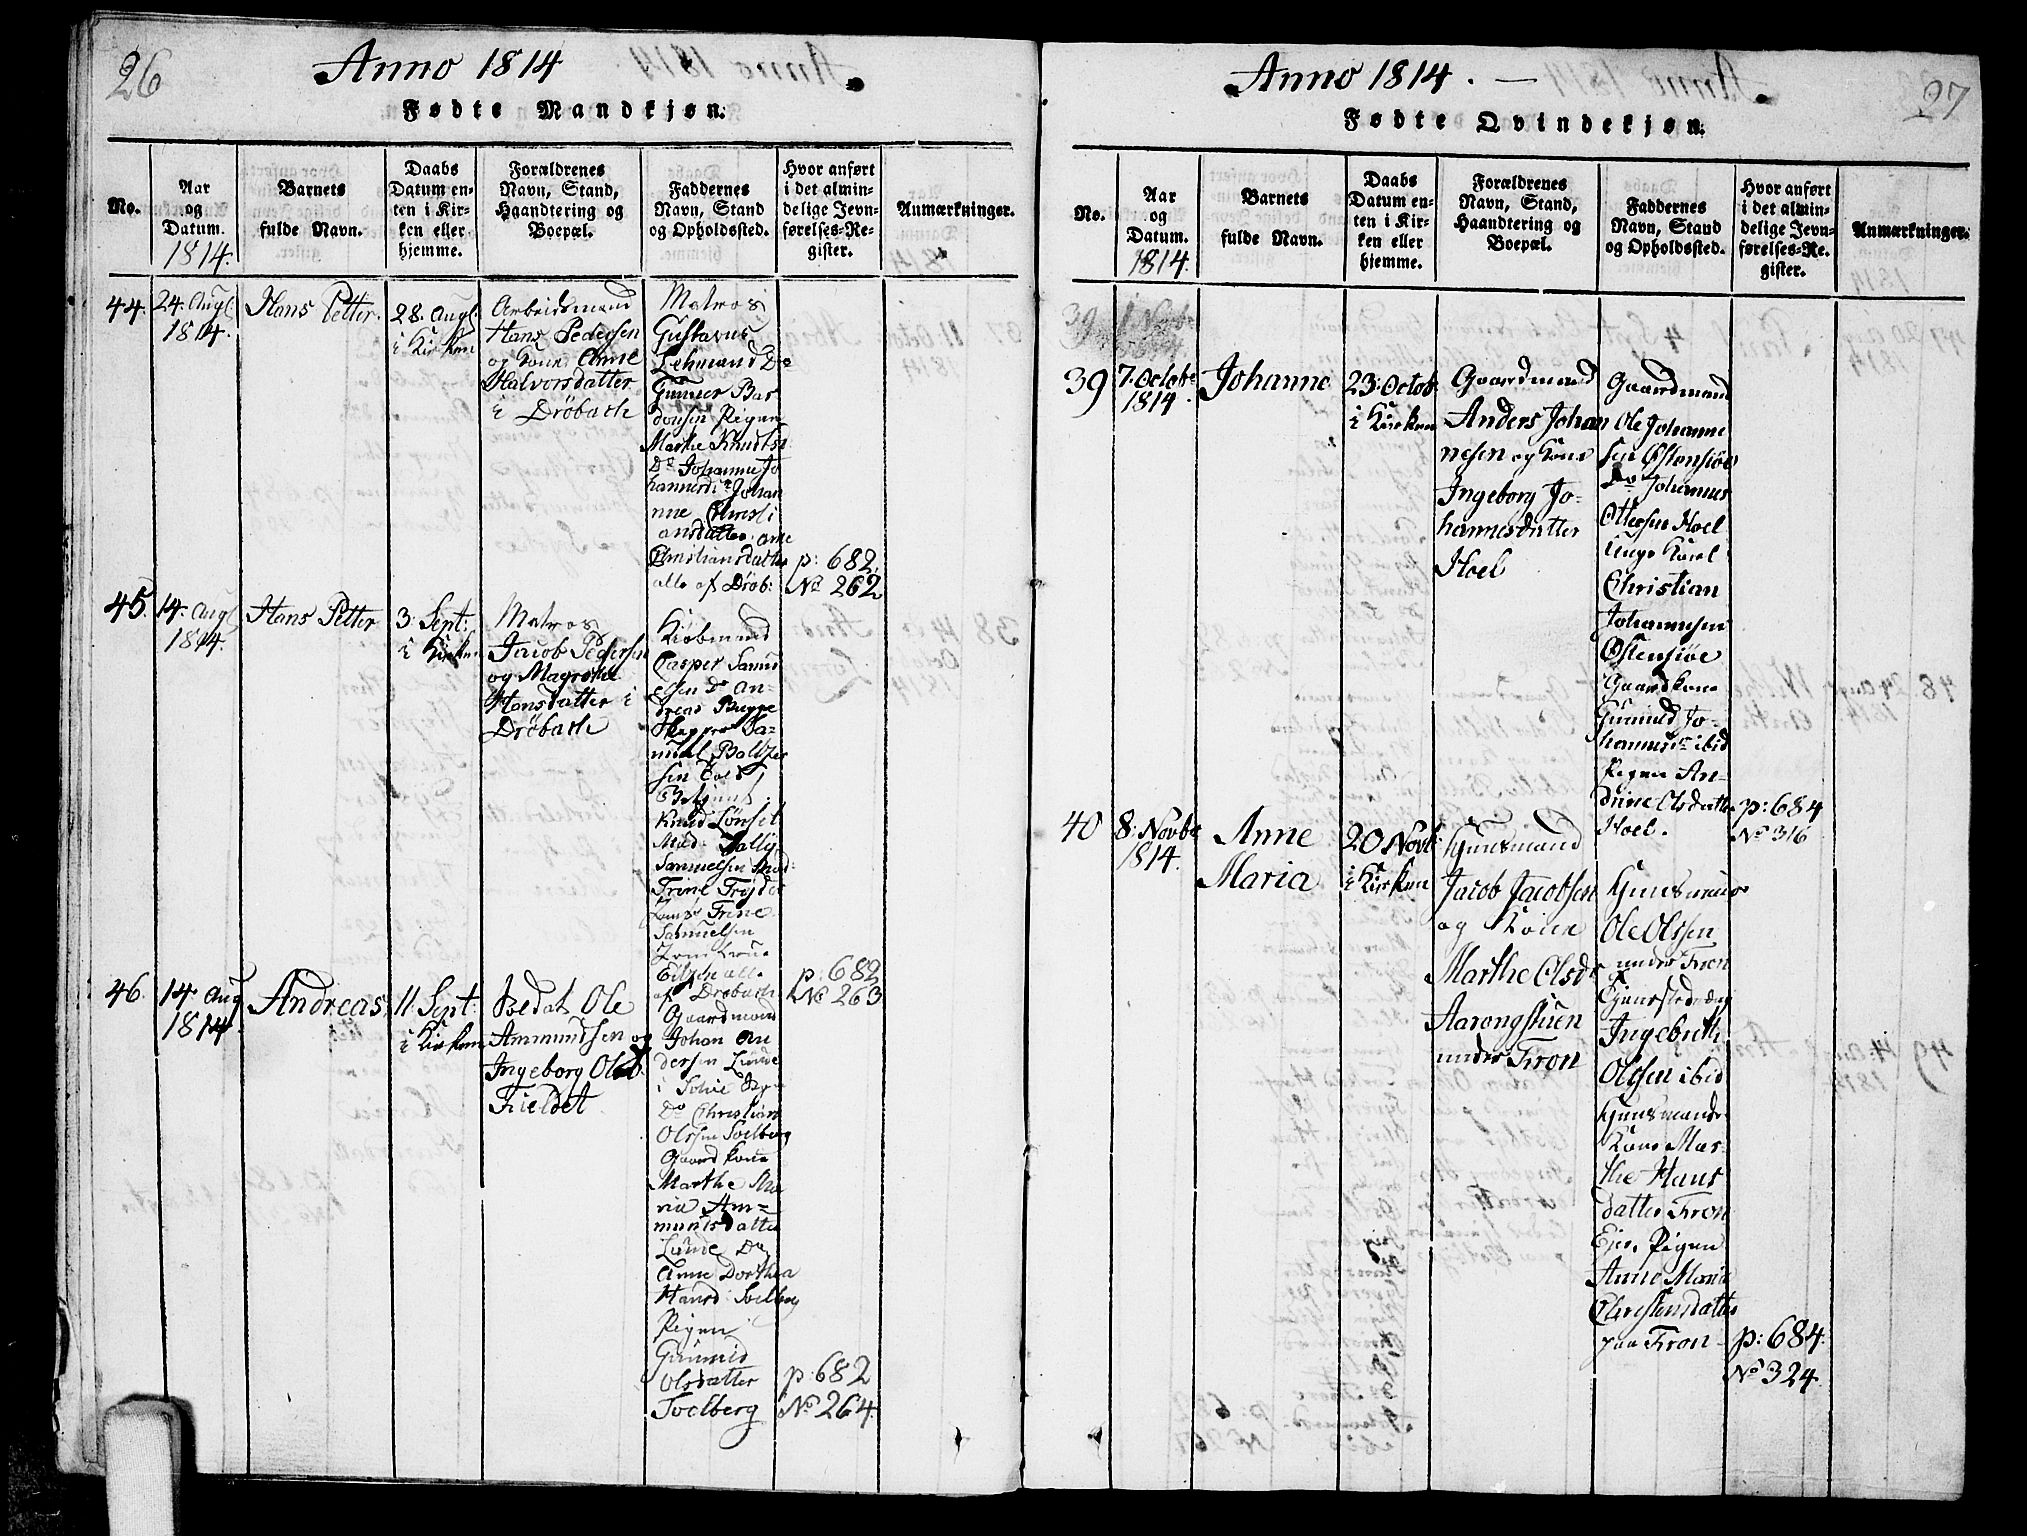 26
Anno 1814
Fødte Mandkjøn.
No.
Aar
og
Datum.
1814.
Barnets
fulde Navn.
Daabs
Datum en-
ten i Kir-
ken eller
hjemme.
Forældrenes
Navn, Stand,
Haandtering og
Boepæl.
Faddernes
Navn, Stand
og Opholdssted.
Hvor anført
i det almin-
delige Jevn-
førelses-Re-
gister.
Anmærkninger.
44.
24. Aug.
1814.
Hans Petter.
28. Aug.
i Kirken
Arbeidsmand
Hans Pedersen
og Kone Anne
Halvorsdatter
i Dröbach
Matros
Gustavus
Lehmand Do
Gunner Bar
donsen Pigen
Marthe Knudts
Do Johanne Jo
hannesd.
Johan
nne Christi
ansdatter. Ane
Christiansdatter
alle af Dröb:
p: 682.
No 262
45.
14. Aug
1814.
Hans Petter
3. Sept:
i Kirken
Matros
Jacob Pedersen
og Magrethe
Hansdatter i
Dröbach
Kiöbmand
Casper Samu
elsen Do An-
dreas Bugge
Skipper Sa-
muel Baltzer
sen
Knud Lönset
Mad.
Samuelsen Mad:
Trine
Trine
Samuelsen
alle
af Dröbach
p: 682
No 263
46.
14 Aug
1814.
Andreas.
11. Sept:
i Kirken
Soldat Ole
Ammundsen og
Ingeborg Olsd.
Fieldet
Gaardmand
Johan An
dersen Lunde
i
Do Christian
Olssen Solberg
Gaardkone
Marthe Ma
ria Am-
mundsdatter
Lunde Do
Anne Dorthea
Hansd Solberg
Pigen
Gunnild
Olsdatter
Solberg
p: 682
No 264.
27
Anno 1814. —
Fødte Qvindekjøn.
No.
Aar
og
Datum.
1814.
Barnets
fulde Navn.
Daabs
Datum en-
ten i Kir-
ken eller
hjemme.
Forældrenes
Navn, Stand,
Haandtering og
Boepæl.
Faddernes
Navn, Stand
og Opholdssted.
Hvor anført
i det almin-
delige Jevn-
førelses-Re-
gister.
Anmærkninger.
39
39
7. Octobr
1814.
Johanne
23. Octob.
i Kirken
Gaardmand
Anders Johan
nesen og Kone
Ingeborg Jo-
hannesdatter
Hoel
Gaardmand
Ole Johanne
sen Östensiöe
Do Johannes
Ottersen Hoel
Unge Karl
Christian
Johannesen
Östensiöe
Gaardkone
Gunnild Jo-
hannesdr ibid
Pigen An-
drine Olsdatter
Hoel.
p: 684
No 316
40
8. Novbr
1814.
Anne
Maria
20 Novb:
i Kirken
Huusmand
Jacob Jacobsen
og Kone
Marthe Olsdr
Aarongstuen
under Fron
Huusmand
Ole Olssen
under Fron
Tjenstedreng
Ingebreth
Olssen ibid
Huusmands
Kone Mar
the Hans
datter Fron
Eje. Pigen
Anne Maria
Christensdatter
paa Fron -
p: 684.
No 324